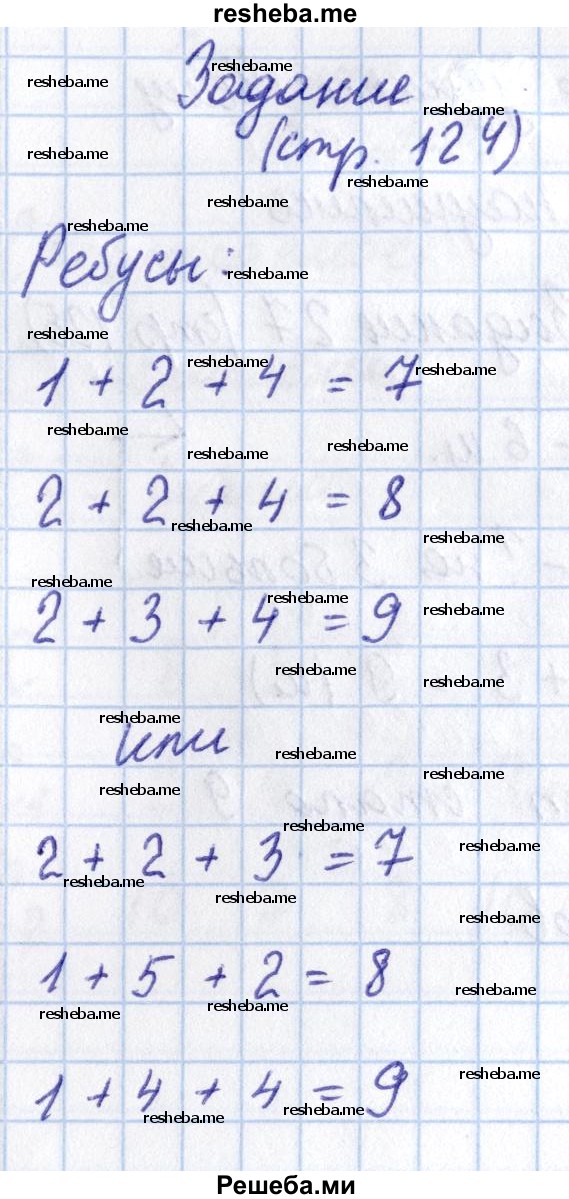 resheba.me
Задание
(стр. 124)
Ребусы:
1 + 2 + 4 = 7
2 + 2 + 4 = 8
2 + 3 + 4 = 9
или
2 + 2 + 3 = 7
1 + 5 + 2 = 8
1 + 4 + 4 = 9
Решеба.ми